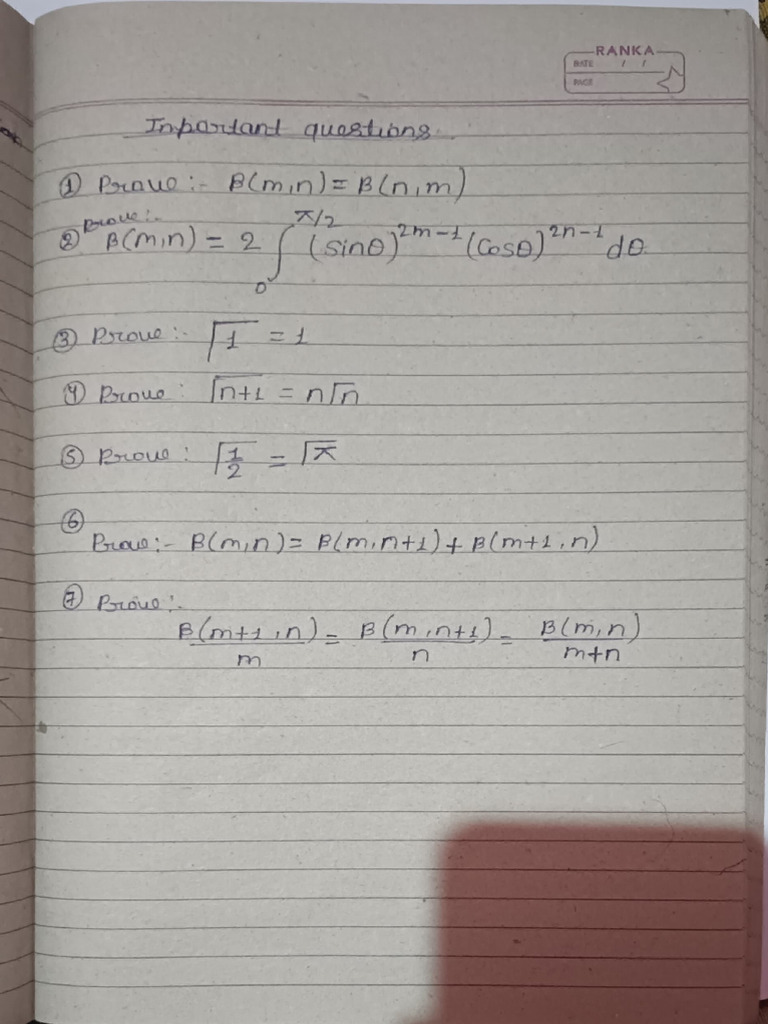 RANKA
DATE / /
PAGE
Inportant questions
① Prove :- B(m,n) = B(n,m)
② Prove:- B(m,n) = 2 ∫₀^{π/2} (sinθ)^{2m-1} (cosθ)^{2n-1} dθ
③ Prove :- ⌈1 = 1
④ Prove : ⌈n+1 = n⌈n
⑤ Prove : ⌈1/2 = √π
⑥
Prove:- B(m,n) = B(m,n+1) + B(m+1,n)
⑦ Prove:-
B(m+1,n)/m = B(m,n+1)/n = B(m,n)/m+n